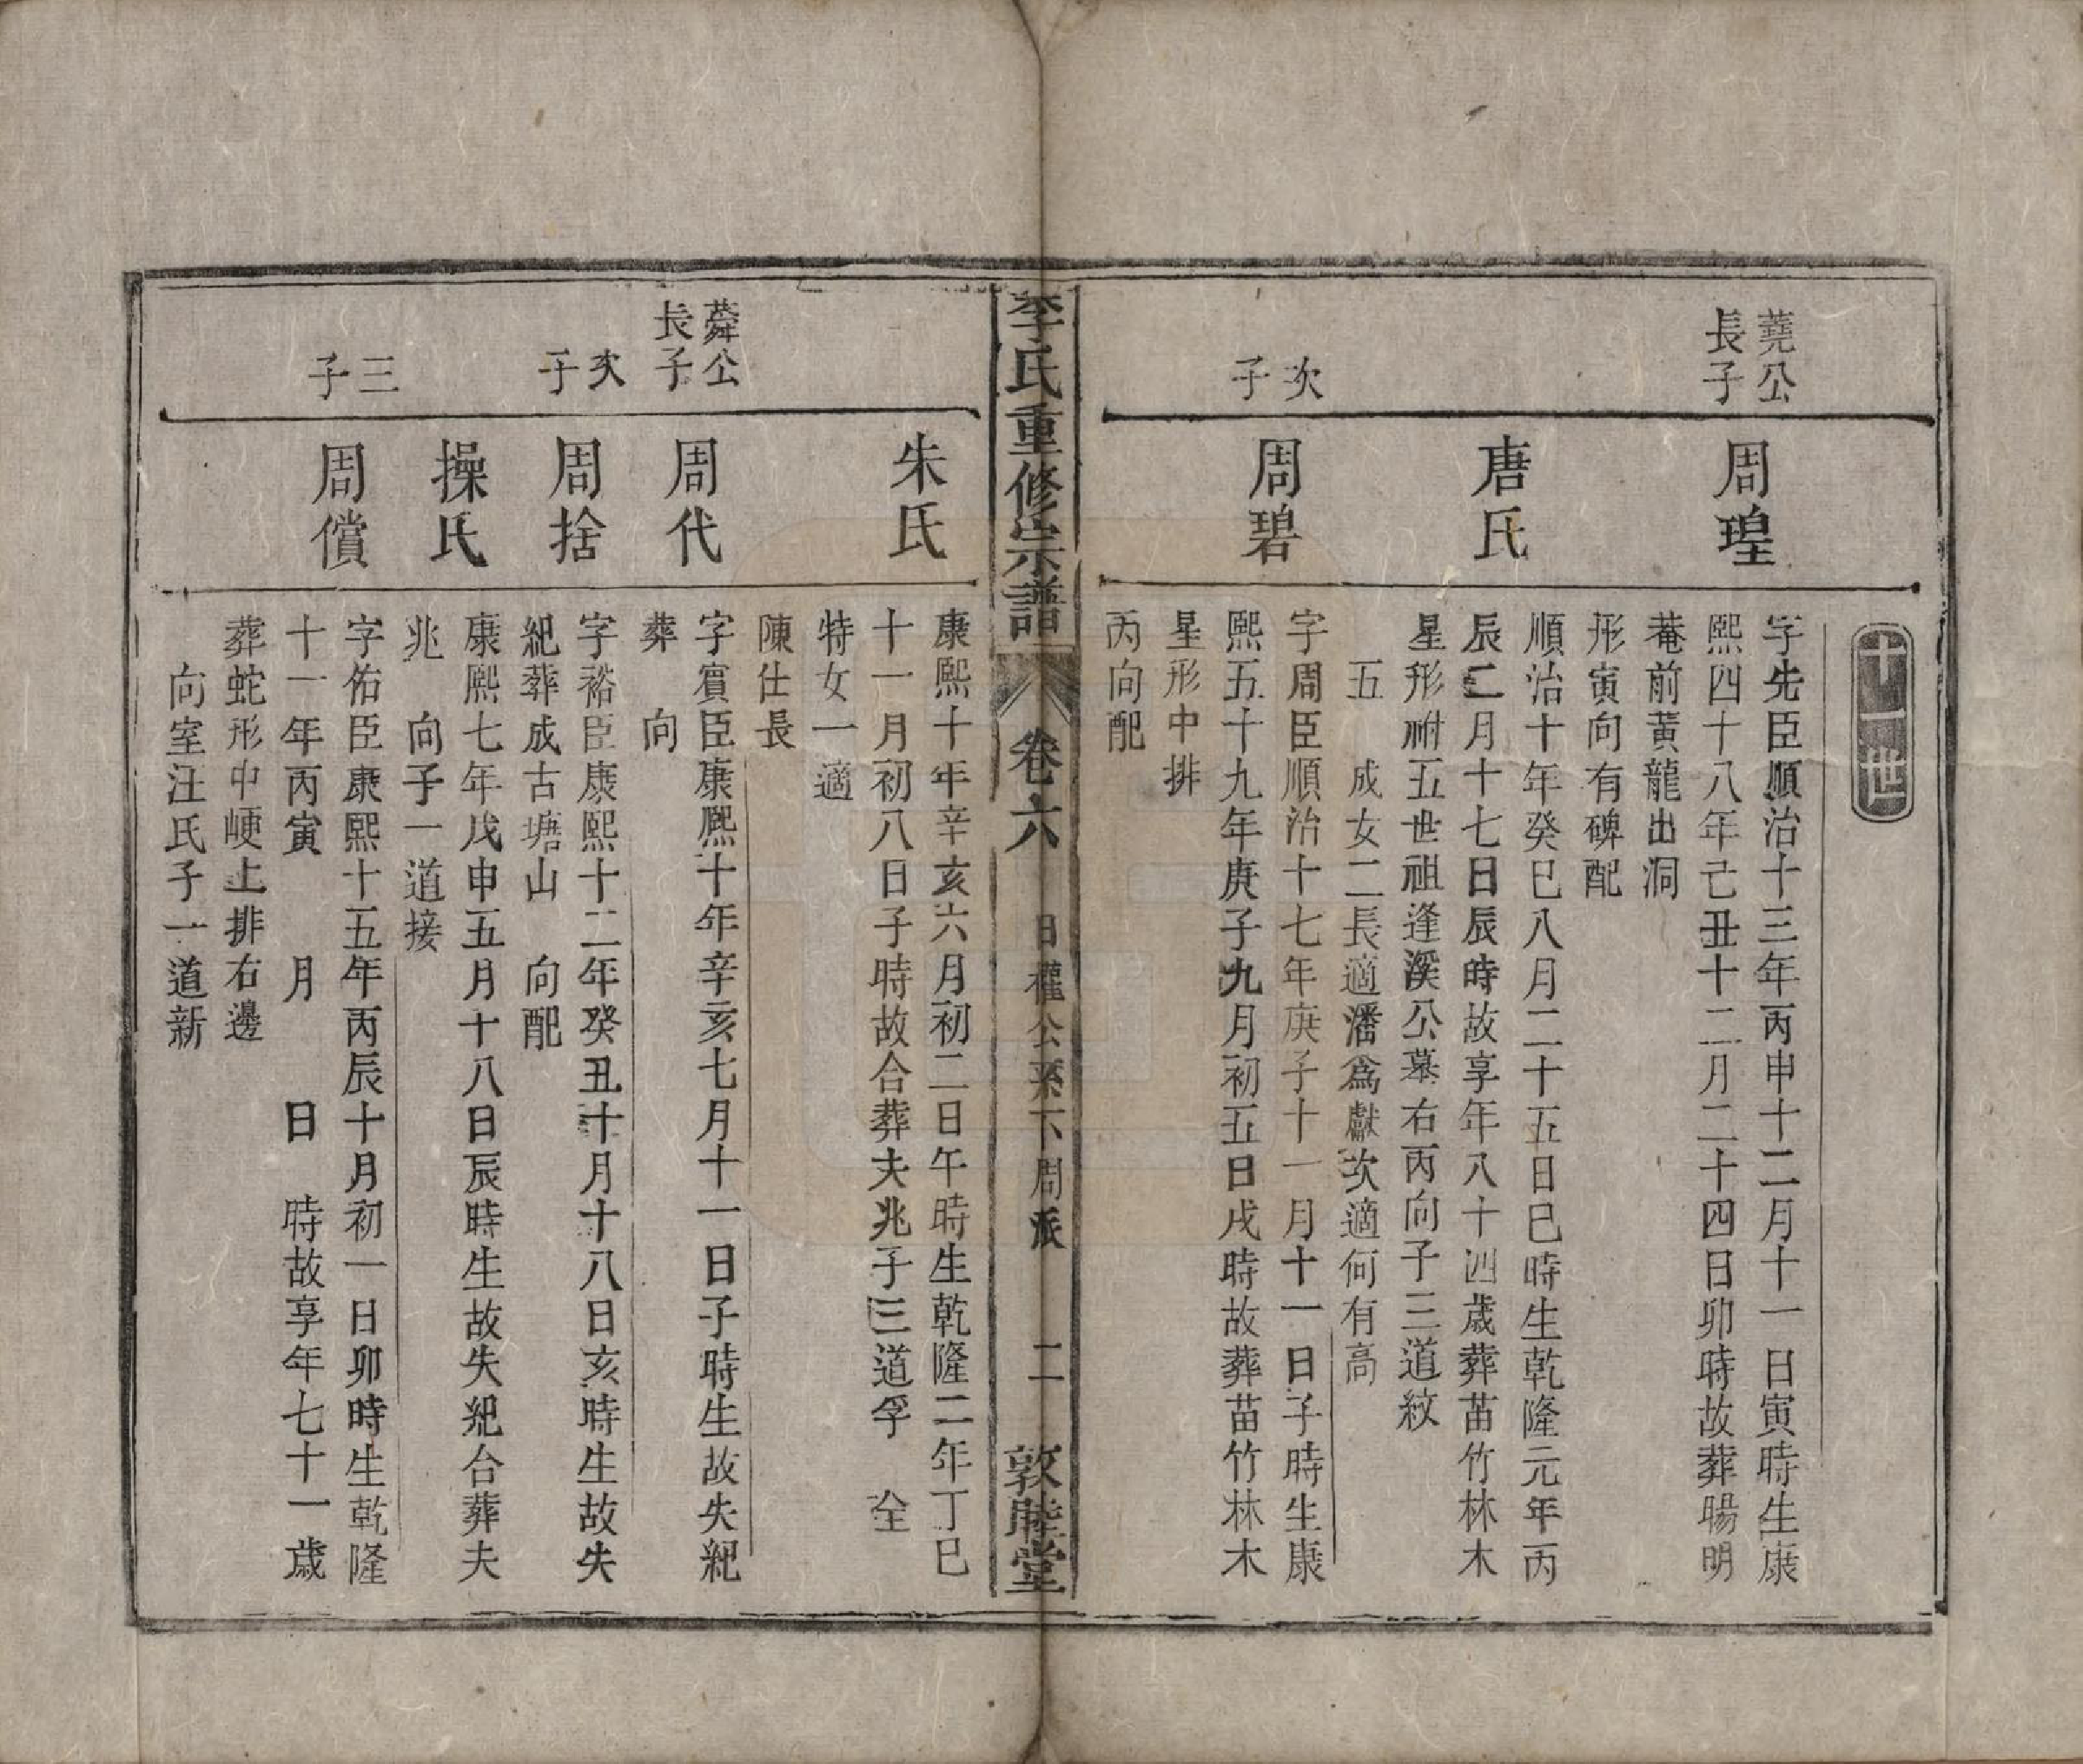 十一世
蕘公
長子
周瑝
字先臣順治十三年丙申十二月十一日寅時生康
熙四十八年己丑十二月二十四日卯時故葬暘明
菴前黃龍出洞
形寅向有碑配
唐氏
順治十年癸巳八月二十五日巳時生乾隆元年丙
辰二月十七日辰時故享年八十四歲葬苗竹林木
星形祔五世祖逢溪公墓右丙向子三道紋
五　成女二長適潘為獻次適何有高
次
子
周碧
字周臣順治十七年庚子十一月十一日子時生康
熙五十九年庚子九月初五日戌時故葬苗竹林木
星形中排
丙向配
李氏重修宗譜
卷六
日權公系下周派
二
敦睦堂
朱氏
康熙十年辛亥六月初二日午時生乾隆二年丁巳
十一月初八日子時故合葬夫兆子三道孚　全
特女一適
陳仕長
蕣公
長子
周代
字賓臣康熙十年辛亥七月十一日子時生故失紀
葬　向
次
子
周捨
字裕臣康熙十二年癸丑十月十八日亥時生故失
紀葬成古塘山　向配
操氏
康熙七年戊申五月十八日辰時生故失紀合葬夫
兆　向子一道接
三
子
周償
字佑臣康熙十五年丙辰十月初一日卯時生乾隆
十一年丙寅　月　日　時故享年七十一歲
葬蛇形中崾上排右邊
向室汪氏子一道新